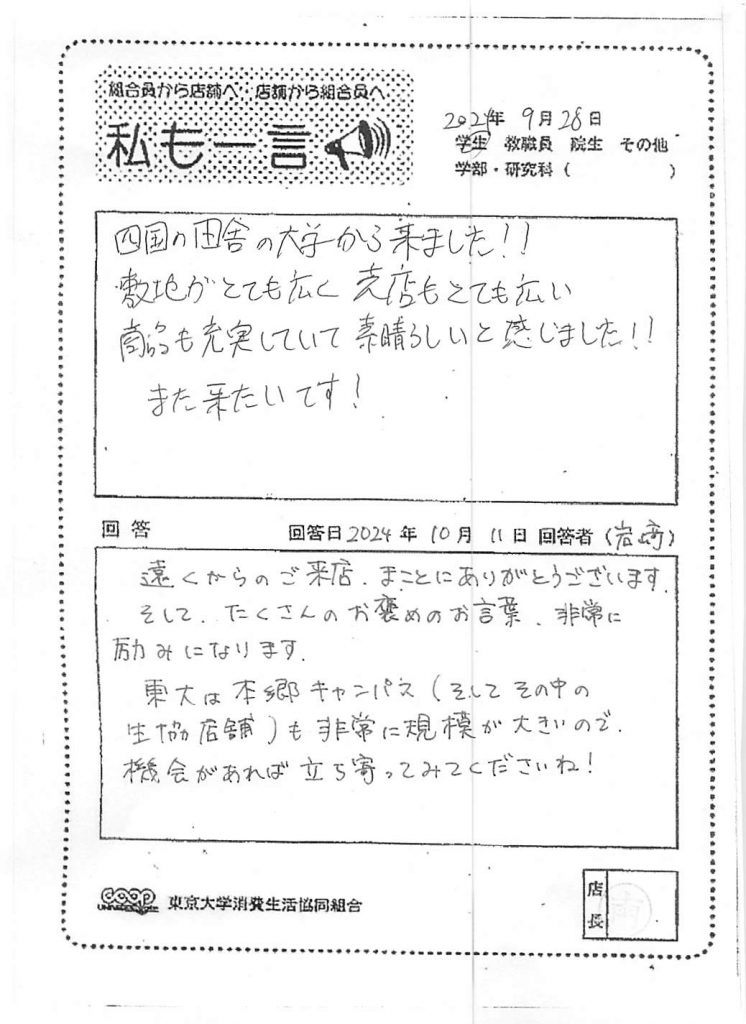 組合員から店舗へ 店舗から組合員へ
私も一言
2024年 9月 28日
学生 教職員 院生 その他
学部・研究科（　　　　　）
四国の田舎の大学から来ました!!
敷地がとても広く 売店もとても広い
商品も充実していて 素晴らしいと感じました!!
また来たいです!
回答 回答日 2024年 10月 11日 回答者（岩崎）
遠くからのご来店、まことにありがとうございます。
そして、たくさんのお褒めのお言葉、非常に
励みになります。
東大は本郷キャンパス（そしてその中の
生協店舗）も非常に規模が大きいので、
機会があれば立ち寄ってみてくださいね!
COOP 東京大学消費生活協同組合
店長